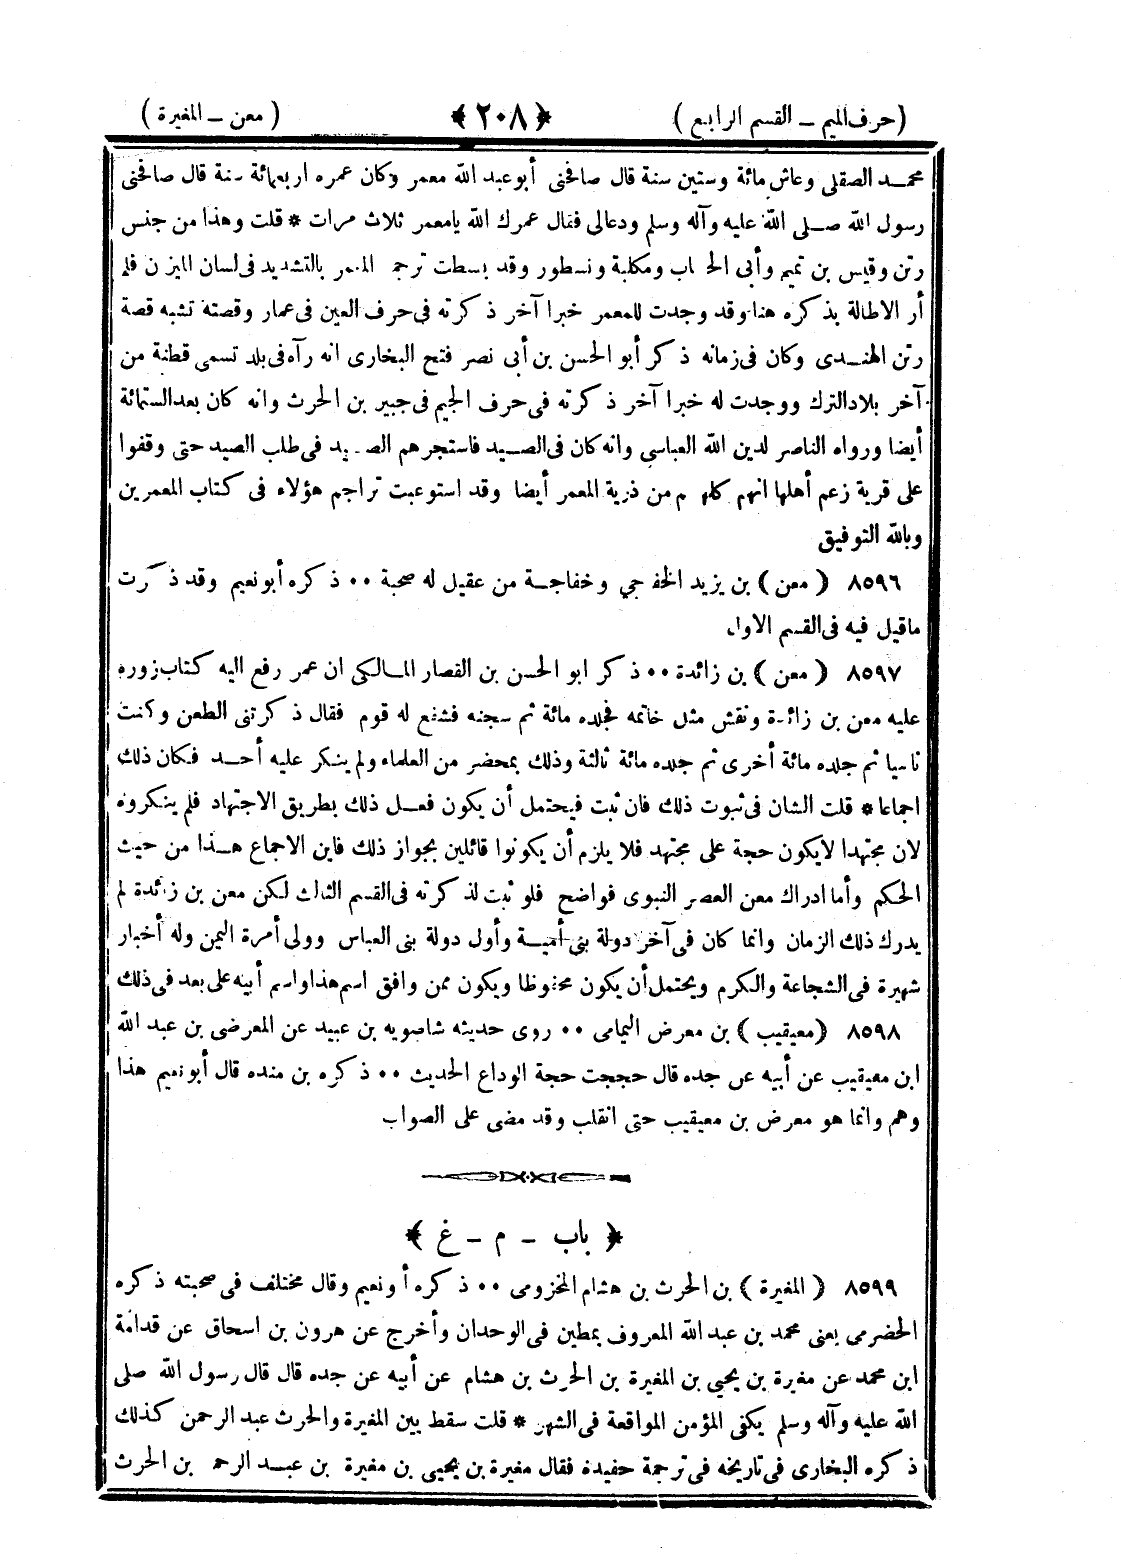 (حرف الميم ـ القسم الرابع)
﴿ ٢٠٨ ﴾
(معن ـ المغيرة)
محمد الصقلى وعاش مائة وستين سنة قال صافحنى أبو عبد الله معمر وكان عمره اربعمائة سنة قال صافحنى
رسول الله صلى الله عليه وآله وسلم ودعالى فقال عمرك الله يامعمر ثلاث مرات * قلت وهذا من جنس
رتن وقيس بن تميم وأبى الخطاب ومكلبة ونسطور وقد بسطت ترجمة المعمر بالتشديد فى لسان الميزان فلم
أر الاطالة بذكره هنا وقد وجدت للمعمر خبرا آخر ذكرته فى حرف العين فى عمار وقصته تشبه قصة
رتن الهندى وكان فى زمانه ذكر أبو الحسن بن أبى نصر فتح البخارى انه رآه فى بلد تسمى قطنة من
آخر بلاد الترك ووجدت له خبرا آخر ذكرته فى حرف الجيم فى جبير بن الحرث وانه كان بعد الستمائة
أيضا ورواه الناصر لدين الله العباسى وانه كان فى الصيد فاستجرهم الصيد فى طلب الصيد حتى وقفوا
على قرية زعم أهلها انهم كلهم من ذرية المعمر أيضا وقد استوعبت تراجم هؤلاء فى كتاب المعمرين
وبالله التوفيق
٨٥٩٦ (معن) بن يزيد الخفاجي وخفاجة من عقيل له صحبة ٠٠ ذكره أبو نعيم وقد ذكرت
ماقيل فيه فى القسم الاول
٨٥٩٧ (معن) بن زائدة ٠٠ ذكر ابو الحسن بن القصار المالكى ان عمر رفع اليه كتاب زوره
عليه معن بن زائدة ونقش مثل خاتمه فجلده مائة ثم سجنه فشفع له قوم فقال ذكرتنى الطعن وكنت
ناسيا ثم جلده مائة أخرى ثم جلده مائة ثالثة وذلك بمحضر من العلماء ولم ينكر عليه أحد فكان ذلك
اجماعا * قلت الشان فى ثبوت ذلك فان ثبت فيحتمل أن يكون فعل ذلك بطريق الاجتهاد فلم ينكروه
لان مجتهدا لايكون حجة على مجتهد فلا يلزم أن يكونوا قائلين بجواز ذلك فاين الاجماع هذا من حيث
الحكم وأما ادراك معن العصر النبوى فواضح فلو ثبت لذكرته فى القسم الثالث لكن معن بن زائدة لم
يدرك ذلك الزمان وانما كان فى آخر دولة بنى أمية وأول دولة بنى العباس وولى أمرة اليمن وله أخبار
شهيرة فى الشجاعة والكرم ويحتمل أن يكون محفوظا ويكون ممن وافق اسم هذا واسم أبيه على بعد فى ذلك
٨٥٩٨ (معيقيب) بن معرض اليمامى ٠٠ روى حديثه شاصويه بن عبيد عن المعرضى بن عبد الله
ابن معيقيب عن أبيه عن جده قال حججت حجة الوداع الحديث ٠٠ ذكره بن منده قال أبو نعيم هذا
وهم وانما هو معرض بن معيقيب حتى انقلب وقد مضى على الصواب
﴿ باب ـ م ـ غ ﴾
٨٥٩٩ (المغيرة) بن الحرث بن هشام المخزومى ٠٠ ذكره أبو نعيم وقال مختلف فى صحبته ذكره
الحضرمى يعنى محمد بن عبد الله المعروف بمطين فى الوحدان وأخرج عن هرون بن اسحاق عن قدامة
ابن محمد عن مغيرة بن يحيى بن المغيرة بن الحرث بن هشام عن أبيه عن جده قال قال رسول الله صلى
الله عليه وآله وسلم يكفى المؤمن المواقعة فى الشهر * قلت سقط بين المغيرة والحرث عبد الرحمن كذلك
ذكره البخارى فى تاريخه فى ترجمة حفيده فقال مغيرة بن يحيى بن مغيرة بن عبد الرحمن بن الحرث